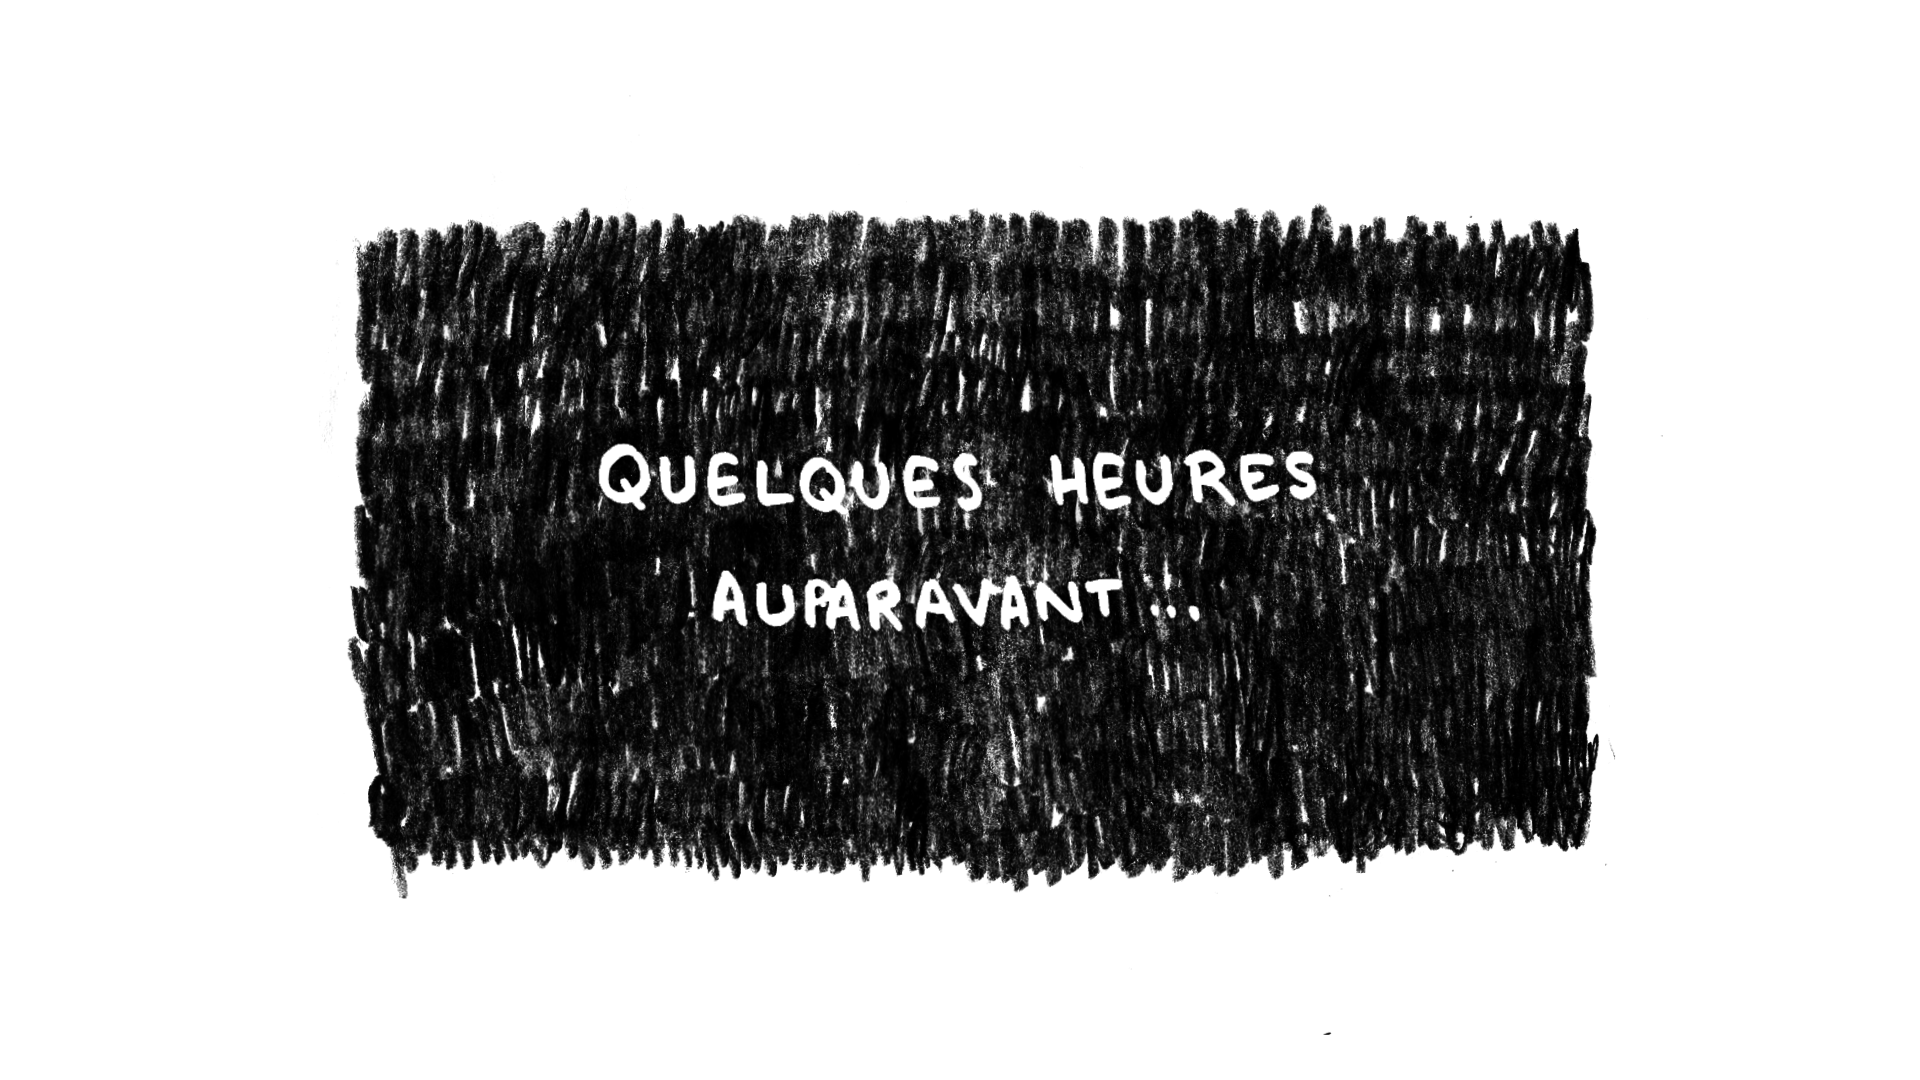 QUELQUES HEURES
AUPARAVANT...